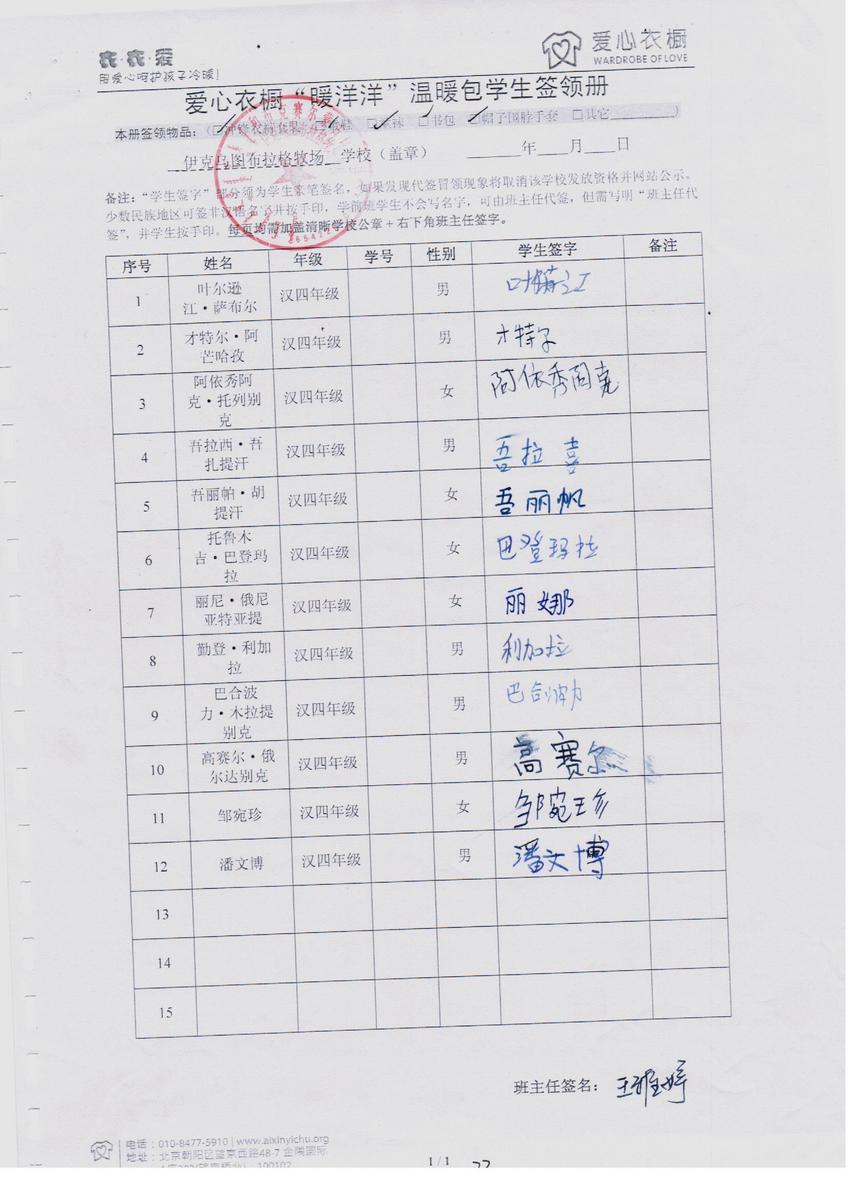 衣·衣·爱
用爱心呵护孩子冷暖!
爱心衣橱
WARDROBE OF LOVE
爱心衣橱“暖洋洋”温暖包学生签领册
本册签领物品:(☐冲锋衣 ☐ ☐ ☐书包 ☐帽子围脖手套 ☐其它__________)
伊克乌图布拉格牧场 学校(盖章) ______年____月____日
备注:“学生签字”部分须为学生亲笔签名,如果发现代签冒领现象将取消该学校发放资格并网站公示。
少数民族地区可签非汉语名字并按手印,学前班学生不会写名字,可由班主任代签,但需写明“班主任代
签”,并学生按手印。每页均需加盖清晰学校公章+右下角班主任签字。
序号 姓名 年级 学号 性别 学生签字 备注
1 叶尔逊江·萨布尔 汉四年级 男
2 才特尔·阿芒哈孜 汉四年级 男 才特尔
3 阿依秀阿克·托列别克 汉四年级 女 阿依秀阿克
4 吾拉西·吾扎提汗 汉四年级 男 吾拉喜
5 吾丽帕·胡提汗 汉四年级 女 吾丽帆
6 托鲁木吉·巴登玛拉 汉四年级 女 巴登玛拉
7 丽尼·俄尼亚特亚提 汉四年级 女 丽娜
8 勤登·利加拉 汉四年级 男 利加拉
9 巴合波力·木拉提别克 汉四年级 男 巴合波力
10 高赛尔·俄尔达别克 汉四年级 男 高赛尔
11 邹宛珍 汉四年级 女 邹宛珍
12 潘文博 汉四年级 男 潘文博
13
14
15
班主任签名: 王雅婷
电话:010-8477-5910 | www.aixinyichu.org
地址:北京朝阳区望京西路48-7 金隅国际
1 / 1